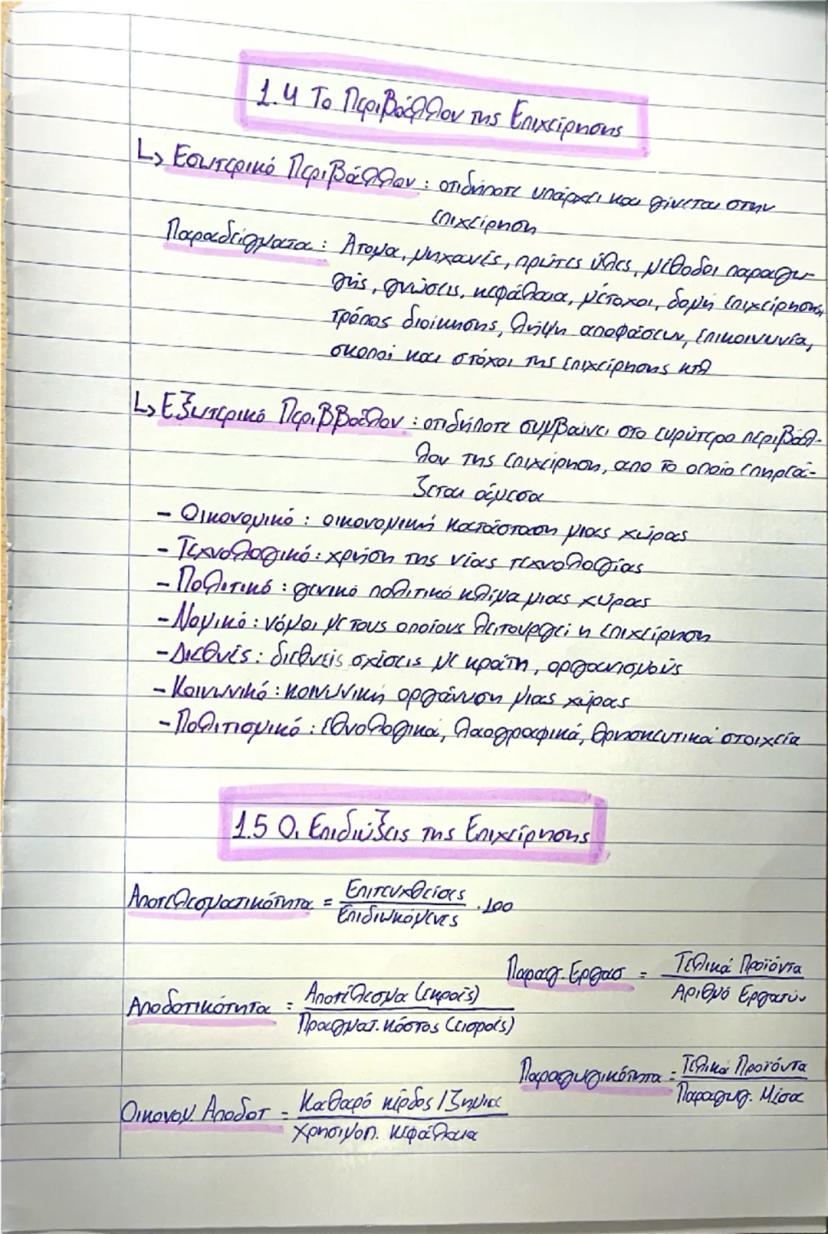 1.4 Το Περιβάλλον της Επιχείρησης
↳ Εσωτερικό Περιβάλλον : οτιδήποτε υπάρχει και γίνεται στην
επιχείρηση
Παραδείγματα : Άτομα, μηχανές, πρώτες ύλες, μέθοδοι παραγω-
γής, γνώσεις, κεφάλαια, μέτοχοι, δομή επιχείρησης,
τρόπος διοίκησης, λήψη αποφάσεων, επικοινωνία,
σκοποί και στόχοι της επιχείρησης κτλ
↳ Εξωτερικό Περιββάλον : οτιδήποτε συμβαίνει στο ευρύτερο περιβάλ-
λον της επιχείρηση, απο το οποίο επηρεά-
ζεται άμεσα
- Οικονομικό : οικονομική κατάσταση μιας χώρας
- Τεχνολογικό : χρήση της νέας τεχνολογίας
- Πολιτικό : γενικό πολιτικό κλίμα μιας χώρας
- Νομικό : νόμοι με τους οποίους λειτουργεί η επιχείρηση
- Διεθνές : διεθνείς σχέσεις με κράτη, οργανισμούς
- Κοινωνικό : κοινωνική οργάνωση μιας χώρας
- Πολιτισμικό : εθνολογικά, λαογραφικά, θρησκευτικά στοιχεία
1.5 Οι Επιδιώξεις της Επιχείρησης
Αποτελεσματικότητα = Επιτευχθείσες
Επιδιωκόμενες · 100
Παραγ. Εργασ = Τελικά Προϊόντα
Αριθμό Εργατών
Αποδοτικότητα = Αποτέλεσμα (εκροές)
Πραγματ. κόστος (εισροές)
Παραγωγικότητα = Τελικά Προϊόντα
Παραγωγ. Μέσα
Οικονομ. Αποδοτ = Καθαρό κέρδος / Ζημιά
Χρησιμοπ. κεφάλαια